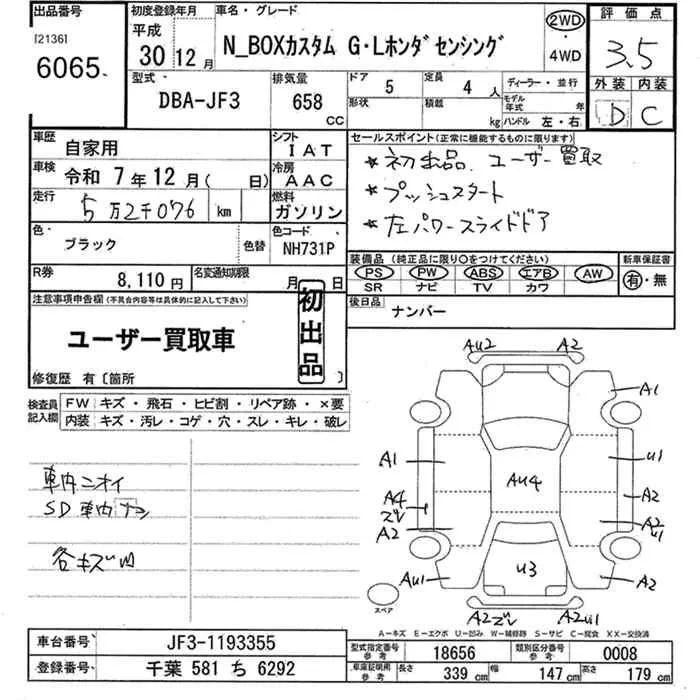 出品番号
[2136]
6065
初度登録年月
平成 30年 12月
車名・グレード
N_BOXカスタム G・Lホンダセンシング
2WD
・
4WD
評価点
3.5
外装 内装
D C
型式
DBA-JF3
排気量
658 CC
ドア 5
定員 4 人
形状
積載 kg
ディーラー・並行
モデル年式 年
ハンドル 左・右
車歴 自家用
シフト IAT
車検 令和 7年 12月( 日)
冷房 AAC
走行 5万2千076 km
燃料 ガソリン
色・ ブラック 色替
色コード NH731P
R券 8,110円
名変通知期限 月 日
セールスポイント(正常に機能するものに限ります)
*初出品、ユーザー買取
*プッシュスタート
*左パワースライドドア
装備品(純正品に限り〇をつけてください)
PS PW ABS エアB AW
SR ナビ TV カワ
新車保証書
有・無
後日品
ナンバー
注意事項申告欄(不具合内容等は具体的に記入して下さい)
ユーザー買取車
初出品
修復歴 有〔箇所 〕
検査員記入欄
FW キズ・飛石・ヒビ割・リペア跡・×要
内装 キズ・汚レ・コゲ・穴・スレ・キレ・破レ
車内ニオイ
SD車内ナシ
各キズ凹
AU2 A2
A1
A1 U1
AU4
A4 A2
ズレ
A2 A2
U1
U3
AU1 A2
スペア
A2ズレ A2U1
A-キズ E-エクボ U-凹み W-補修跡 S-サビ C-腐食 XX-交換済
車台番号 JF3-1193355
登録番号 千葉 581 ち 6292
型式指定番号 参考 18656
類別区分番号 参考 0008
車庫証明用 参考 長さ 339 cm 幅 147 cm 高さ 179 cm